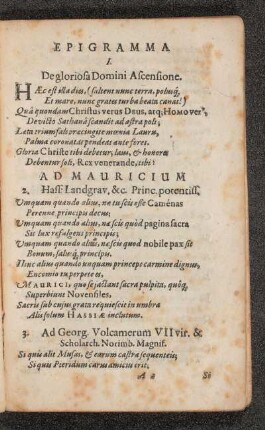 EPIGRAMMA
I.
De gloriosa Domini Ascensione.
HÆc est illa dies, (saltent nunc terra, polusq́,
Et mare, nunc grates turba beata canat!)
Quâ quondam Christus verus Deus, atq; Homo verꝰ,
Devicto Sathanâ scandit ad astra poli;
Lata triumfales cingite mœnia Lauru,
Palma coronatas pendeat ante fores.
Gloria Christe tibi debetur, laus, & honores
Debentur soli, Rex venerande, tibi!
AD MAURICIUM
2. Hass: Landgrav, &c. Princ. potentiss.
UMquam quando alius, ne tu scis esse Caménas
Perenne principis decus;
Umquam quando alius, næ scis quòd pagina sacra
Sit lux resulgens principis;
Umquam quando alius, næ scis quod nobile pax sit
Bonum, salusq́, principis.
Hinc alius quando unquam princeps carmine dignus,
Encomio tu perpete es,
MAURICI, quo se jactant sacra pulpita, quóq́,
Superbiunt Novensiles,
Sacris sub cujus grata requiescit in umbra
Aliis solum HASSIÆ inclutum.
3. Ad Georg. Volcamerum VIIvir. &
Scholarch. Norimb. Magnif.
Si quis alit Musas, & earum castra sequenteis;
Si quis Pieridum carus amicus erit,
A 2 Si